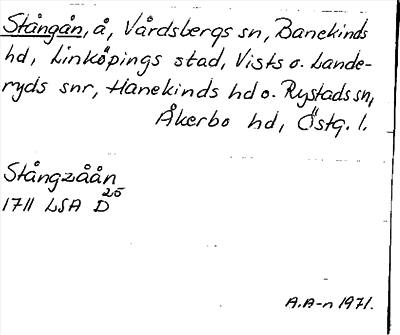 Stångån, å, Vårdsbergs sn, Banekinds
hd, Linköpings stad, Vists o. Lande-
ryds snr, Hanekinds hd o. Rystads sn,
Åkerbo hd, Östg. l.
Stångzåån
1711 LSA D 25
A.A-n 1971.